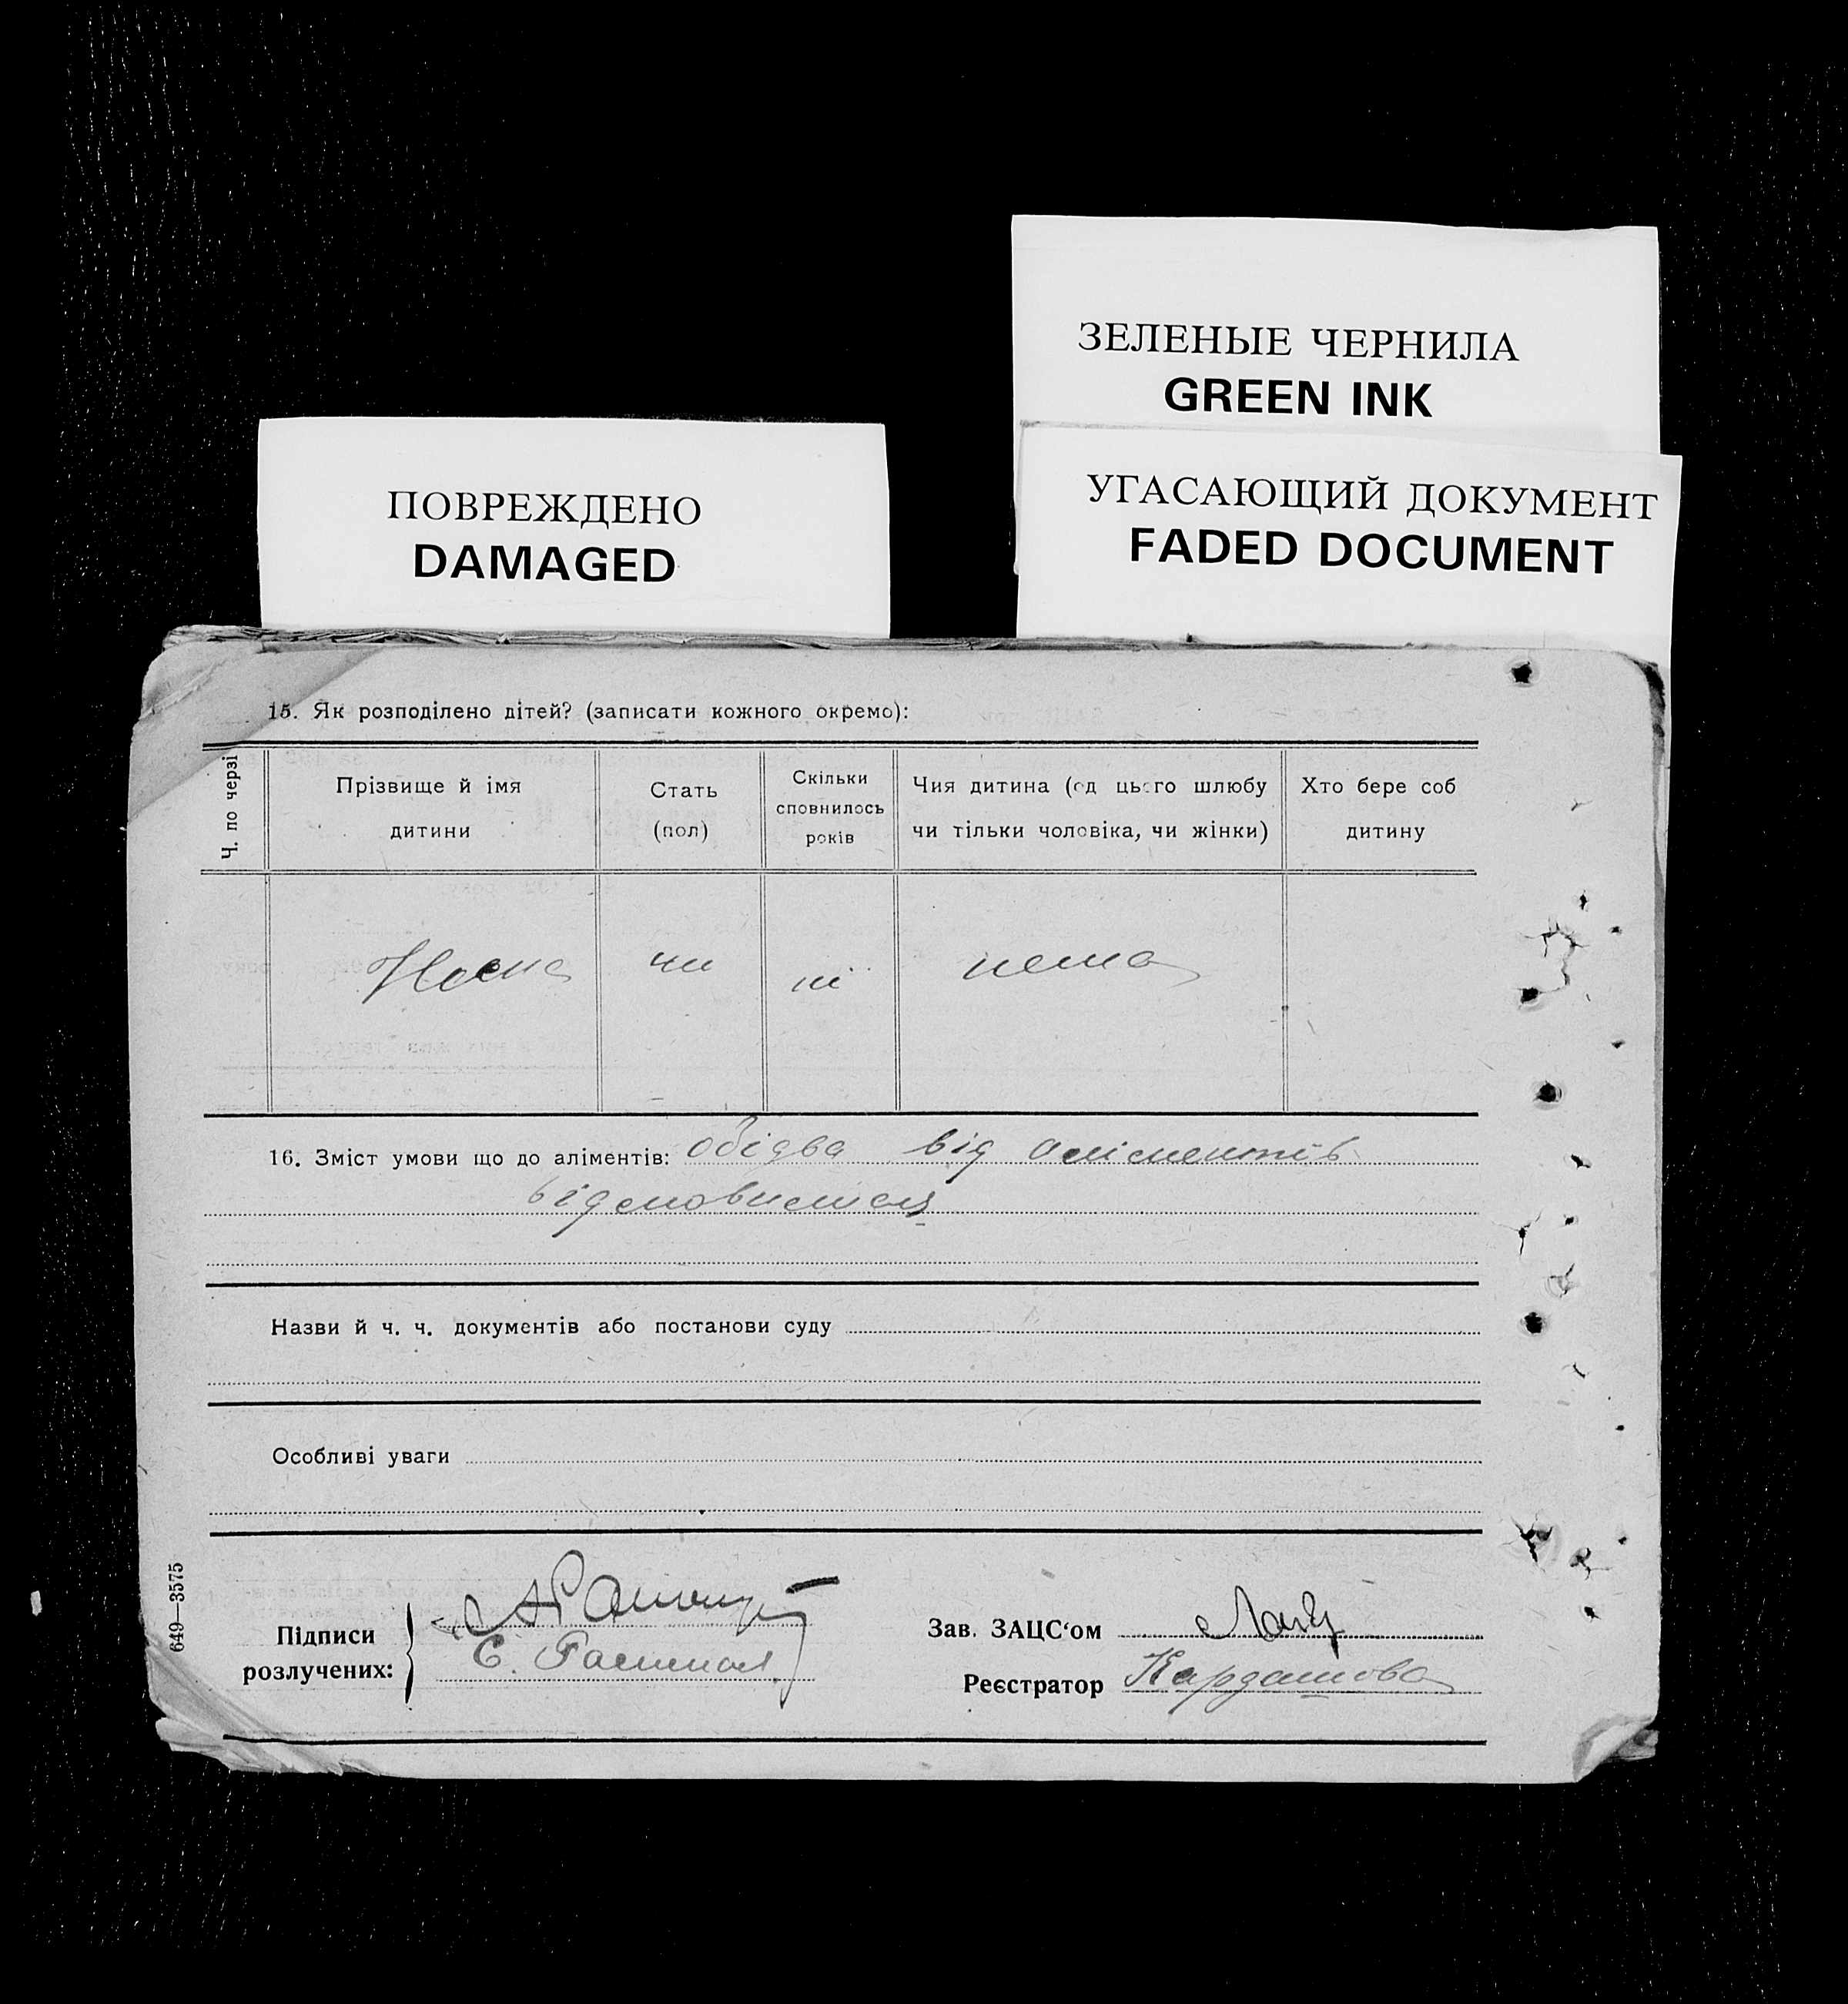 ЗЕЛЕНЫЕ ЧЕРНИЛА
GREEN INK
ПОВРЕЖДЕНО
DAMAGED
УГАСАЮЩИЙ ДОКУМЕНТ
FADED DOCUMENT
15. Як розподілено дітей? (записати кожного окремо):
Ч. по черзі
Прізвище й імя
дитини
Стать
(пол)
Скільки
сповнилось
років
Чия дитина (од цього шлюбу
чи тільки чоловіка, чи жінки)
Хто бере соб
дитину
нема
16. Зміст умови що до аліментів: обідва від аліментів
відмовились
Назви й ч. ч. документів або постанови суду
Особливі уваги
649—3575
Підписи
розлучених:
Е.
Зав. ЗАЦС‘ом
Реєстратор Кардашова